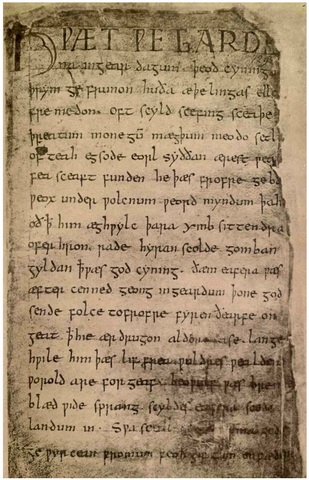 HǷÆT ǷE GARDE
na ingear dagum. þeod cyninga
þrym ge frunon huða æþelingas elle
fre medon. oft scyld scefing sceaþe
þreatum monegū mægþum meodo setl
of teah egsode eorl syððan ærest ƿea
fea sceaft funden he þæs frofre geba
ƿeox under ƿolcnum ƿeorð myndum þah
oð ꝥ him æghƿylc þara ymb sittendra
ofer hron rade hyran scolde gomban
gyldan ꝥ ƿæs god cyning. ðæm eafera ƿæs
æfter cenned geong ingeardum þone god
sende folce tofrofre fyren ðearfe on
geat ꝥ hie ær drugon aldor ase. lange
hƿile him þæs lif frea ƿuldres ƿealden
ƿorold are for geaf. beoƿulf ƿæs breme
blæd ƿide sprang scyldes eafera scede
landum in. Sƿa sceal guma god
ge ƿyrcean fromum feoh giftum on fæder